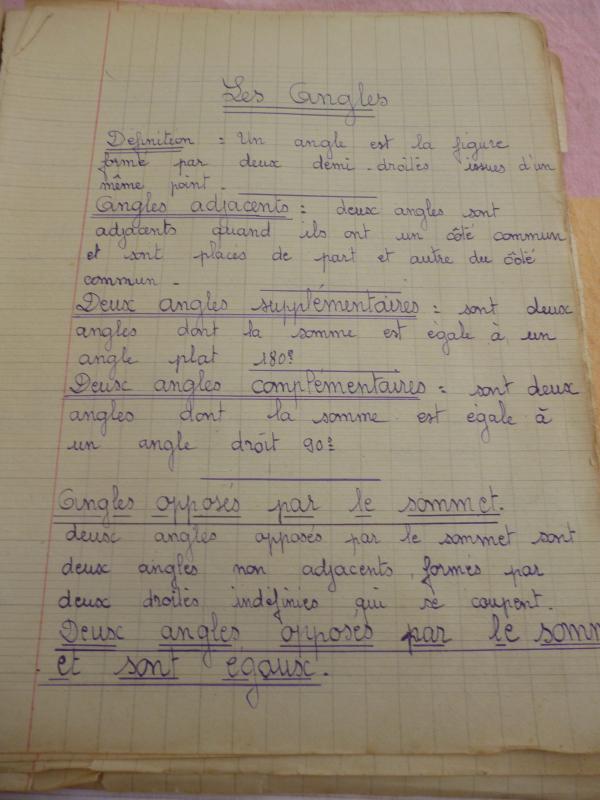 Les Angles
Definition = Un angle est la figure
formé par deux demi-droites issues d'un
même point.
Angles adjacents = deux angles sont
adjacents quand ils ont un côté commun
et sont placés de part et autre du côté
commun.
Deux angles supplémentaires = sont deux
angles dont la somme est égale à un
angle plat 180°
Deux angles complémentaires = sont deux
angles dont la somme est égale à
un angle droit 90°
Angles opposés par le sommet.
deux angles opposés par le sommet sont
deux angles non adjacents, formés par
deux droites indéfinies qui se coupent.
Deux angles opposés par le somm
et sont égaux.